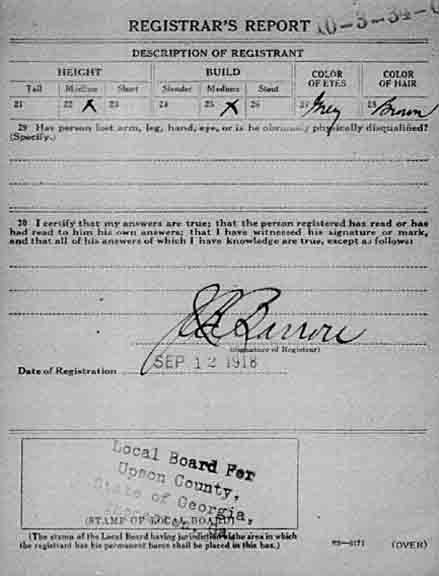 REGISTRAR'S REPORT 10-3-34-C
DESCRIPTION OF REGISTRANT
HEIGHT BUILD COLOR OF EYES COLOR OF HAIR
Tall Medium Short Slender Medium Stout
21 22 X 23 24 25 X 26 27 Grey 28 Brown
29 Has person lost arm, leg, hand, eye, or is he obviously physically disqualified?
(Specify.)
30 I certify that my answers are true; that the person registered has read or has
had read to him his own answers; that I have witnessed his signature or mark,
and that all of his answers of which I have knowledge are true, except as follows:
(Signature of Registrar)
Date of Registration SEP 12 1918
Local Board For
Upson County,
State of Georgia,
(STAMP OF LOCAL BOARD)
(The stamp of the Local Board having jurisdiction of the area in which
the registrant has his permanent home shall be placed in this box.)
(OVER)